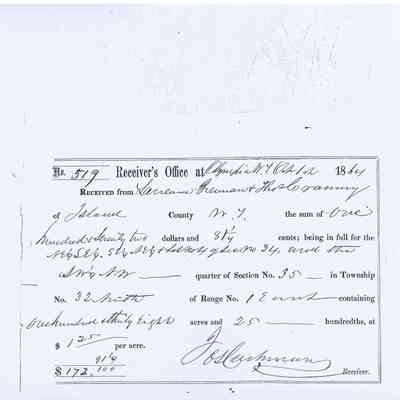 No. 519 Receiver's Office at Olympia W.T. Oct 12 1864
RECEIVED from Lawrence Grennan & Thos Cranny
of Island County W.T. the sum of One
hundred & Seventy two dollars and 81¼ cents; being in full for the
NE¼ SE¼ SE¼ NE¼ & Lot No 4 of Sec No. 34 and the
SW¼ NW quarter of Section No. 35 in Township
No. 32 North of Range No. 1 East containing
One hundred & thirty Eight acres and 25 hundredths, at
$ 1 25 per acre.
$ 172. 81¼/100 Jos Cushman Receiver.